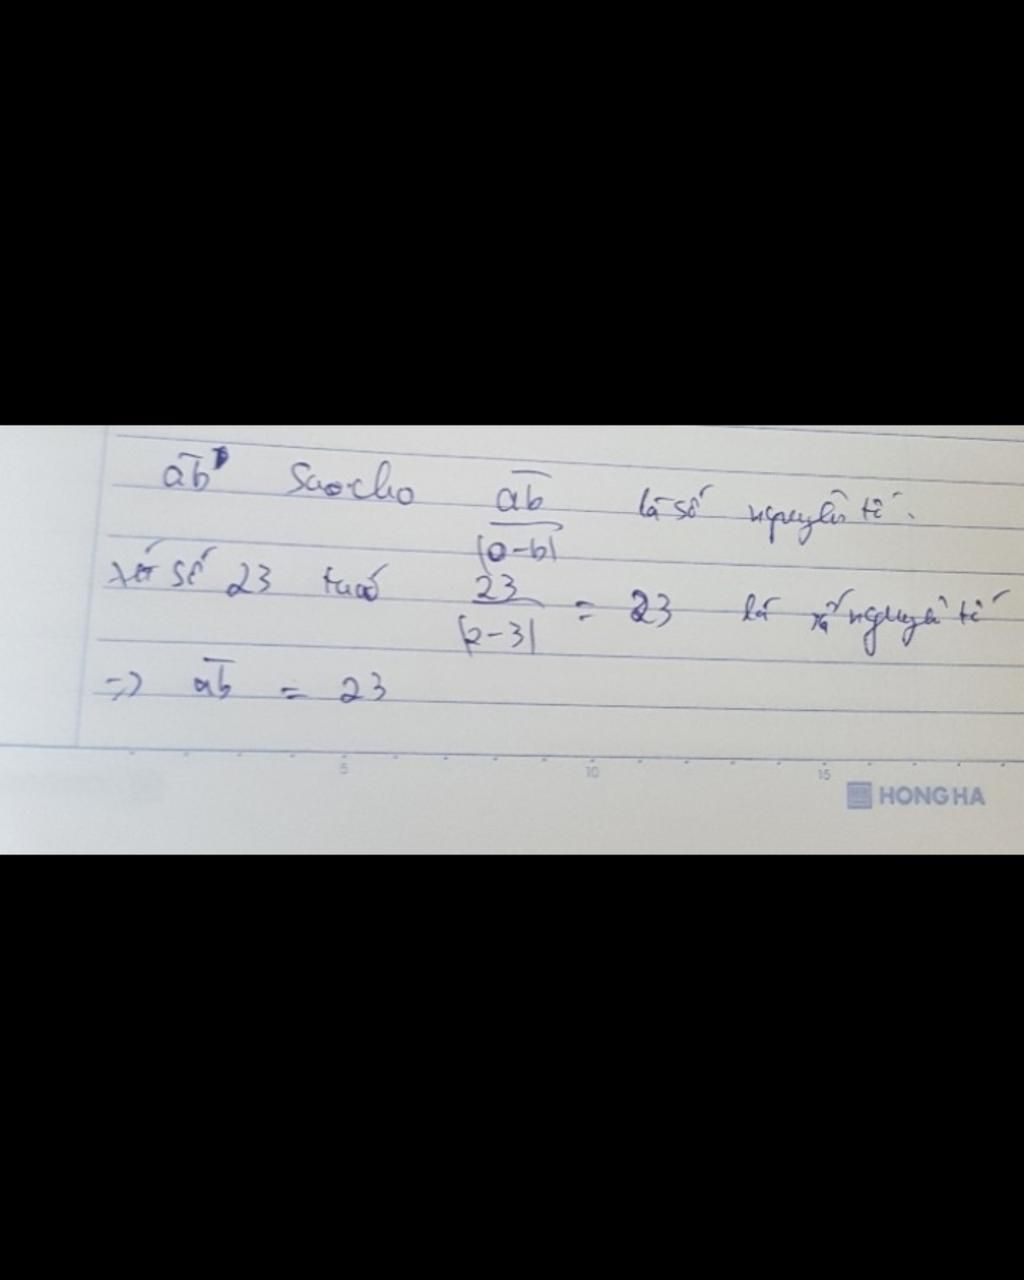 ab sao cho ab / |a-b| là số nguyên tố.
xét số 23 ta có 23 / |2-3| = 23 là số nguyên tố
=> ab = 23
5 10 15
HONG HA